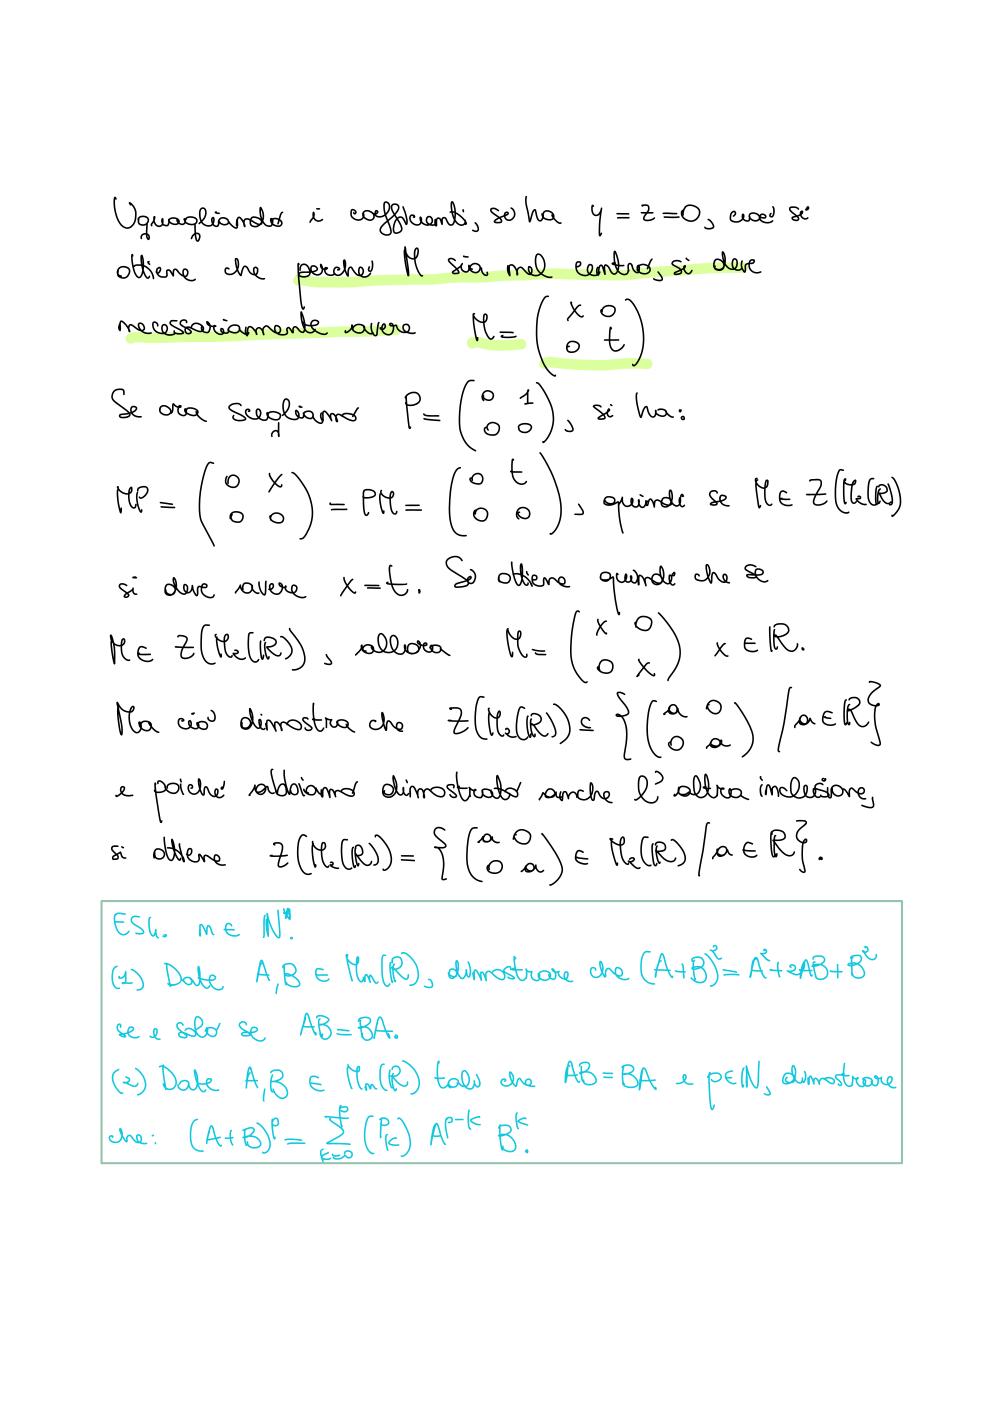 Uguagliando i coefficienti, si ha y = z = 0, cioè si
ottiene che perché M sia nel centro, si deve
necessariamente avere M = (x 0 0 t)
Se ora scegliamo P = (0 1 0 0), si ha:
MP = (0 x 0 0) = PM = (0 t 0 0), quindi se M ∈ Z(M₂(ℝ))
si deve avere x = t. Si ottiene quindi che se
M ∈ Z(M₂(ℝ)), allora M = (x 0 0 x) x ∈ ℝ.
Ma ciò dimostra che Z(M₂(ℝ)) ⊆ {(a 0 0 a) / a ∈ ℝ}
e poiché abbiamo dimostrato anche l'altra inclusione,
si ottiene Z(M₂(ℝ)) = {(a 0 0 a) ∈ M₂(ℝ) / a ∈ ℝ}.
ES4. n ∈ ℕ*.
(1) Date A, B ∈ Mn(ℝ), dimostrare che (A+B)² = A² + 2AB + B²
se e solo se AB = BA.
(2) Date A, B ∈ Mn(ℝ) tali che AB = BA e p ∈ ℕ, dimostrare
che: (A+B)^p = Σ_{k=0}^{p} (p k) A^{p-k} B^k.